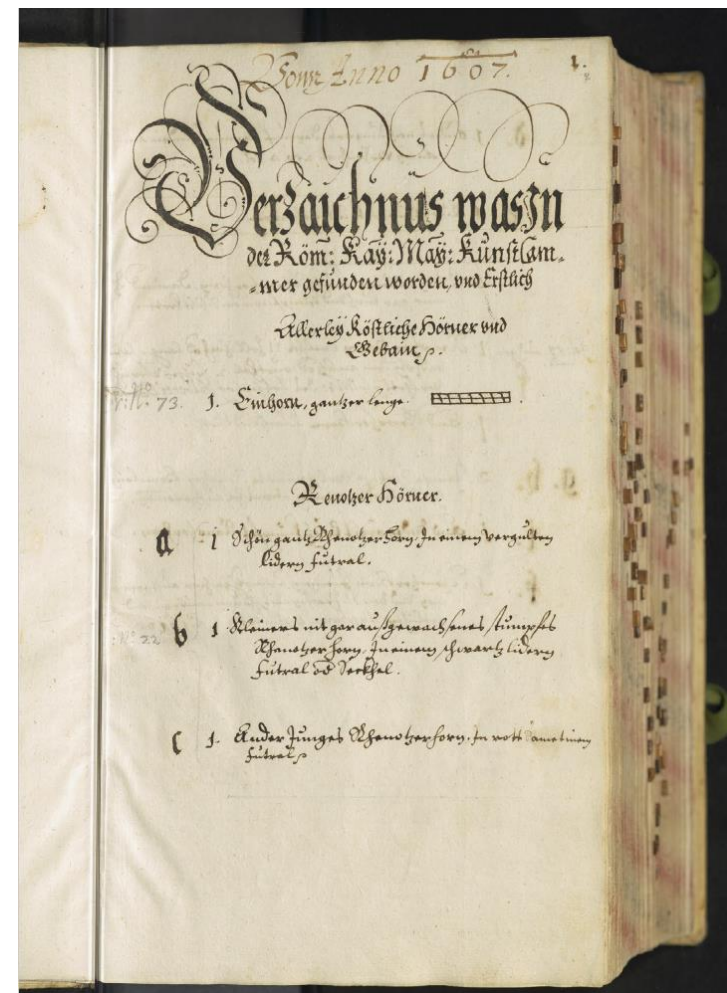 Vonn Anno 1607.
1.
Verzaichnus was In
der Röm: Kay: May: Kunst Cam=
=mer gefunden worden, vnd Erstlich
Allerley Köstliche Hörner vnd
Gebain
73. 1. Einhorn, gantzer lenge.
Renotzer Hörner.
a 1 Schön gantz Rhenotzer horn, In einem vergulten
lidern futral.
22 b 1 Kleiners nit gar außgewachsenes stumpfes
Rhenotzer horn, In einem schwartz lidern
futral od Seckhel.
c 1. Ander Junges Rhenotzer horn, In rott Sametinem
futral